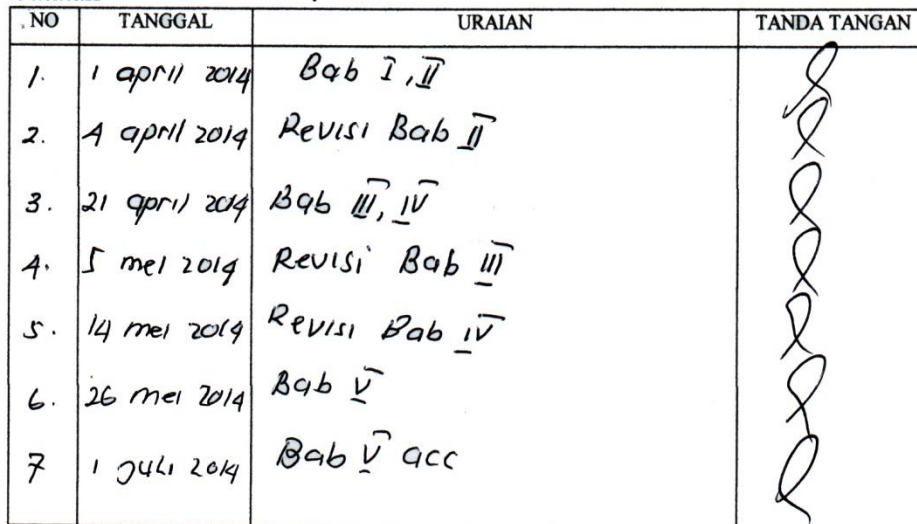 NO TANGGAL URAIAN TANDA TANGAN
1. 1 april 2014 Bab I, II
2. 4 april 2014 Revisi Bab II
3. 21 april 2014 Bab III, IV
4. 5 mei 2014 Revisi Bab III
5. 14 mei 2014 Revisi Bab IV
6. 26 mei 2014 Bab V
7 1 Juli 2014 Bab V acc